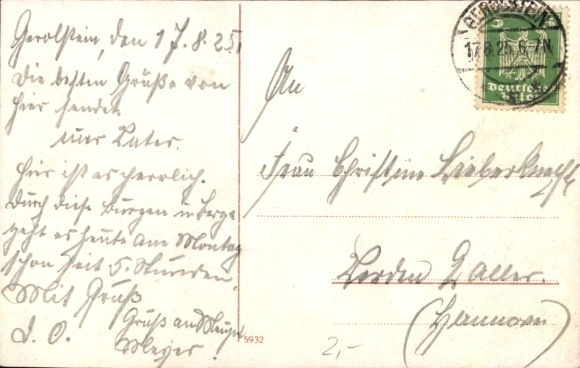 Gerolstein, den 17.8.25.
Die besten Grüße von
hier sendet
euer Vater.
Hier ist es herrlich.
Durch diese Burgen u. Berge
geht es heute am Montag
schon seit 5 Stunden.
Mit Gruß
Gruß
Meyer.
5932
2,-
An
Frau Christine Lieberknecht
Verden Aller.
(Hannover)
GEROLSTEIN
17.8.25. 6-7N
5
Deutsches
Reich